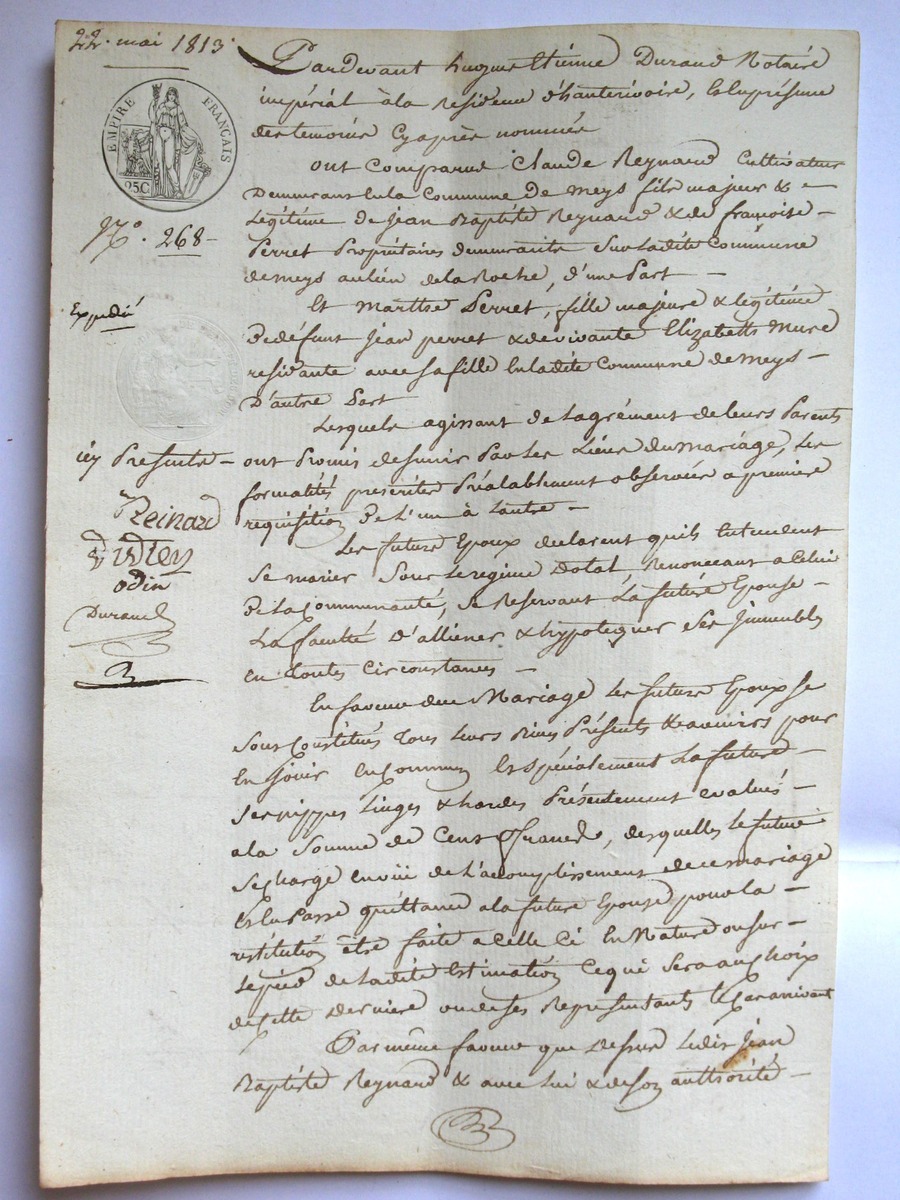 22. mai 1813.
EMPIRE FRANÇAIS
25C
N.o 268 -
Expédié
icy Presents -
Reinard
odin
Durand
Pardevant hugues Etienne Durand Notaire
impérial à la Residence d'hauterivoire, Et en présence
des temoins Cy après nommés
ont Comparu Claude Reynard Cultivateur
Demeurant en la Commune de meys fils majeur & -
Légitime de Jean Baptiste Reynard & de françoise -
Perret Propriétaires demeurants Sur ladite Commune
de meys au lieu de la Roche, d'une Part -
Et marthe Perret, fille majeure & légitime
De défunt Jean perret & de vivante Elizabeth Mure
residante avec sa fille En ladite Commune de Meys -
D'autre Part
Lesquels agissant de Lagrément de leurs Parents
ont Promis de sunir Par les Liens du mariage, Les
formalités prescrites Préalablement observées a première
requisition De L'un à Lautre -
Les futurs Epoux declarent quils Entendent
Se marier Sous Le regime Dotal Renoncant a Celui
De La Communauté, Se Reservant La future Epouse -
La faculté D'alliener & hypotequer Ses Immeubles
En Toutes Circonstances -
En faveur du Mariage Les futurs Epoux se
Sont Constitués Tous Leurs Biens Présents & avenirs pour
En Jouir En Commun Et Spécialement La future -
Ses nippes Linges & hardes Présentement evalués -
a la Somme de Cent francs, desquelles Le futur
Se Charge En vüe de L'accomplissement de ce mariage
Et En Passe quittance a la future Epouse pour la -
restitution être faite a Celle Ci En Nature ou sur -
Le pied de Ladite Estimation Ce qui Sera au Choix
de Cette Derniere ou de ses Representants Le Cas arrivant
Par même faveur que Dessus Ledit Jean
Baptiste Reynard & avec Lui & de son authorité -